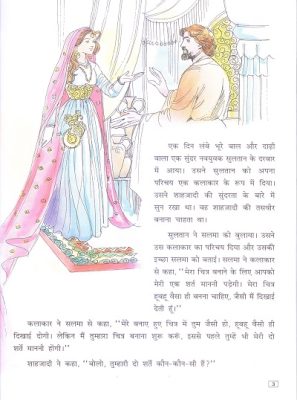 एक दिन लंबे भूरे बाल और दाढ़ी
वाला एक सुंदर नवयुवक सुलतान के दरबार
में आया। उसने सुलतान को अपना
परिचय एक कलाकार के रूप में दिया।
उसने शाहजादी की सुंदरता के बारे में
सुन रखा था। वह शाहजादी की तसवीर
बनाना चाहता था।
सुलतान ने सलमा को बुलाया। उसने
उस कलाकार का परिचय दिया और उसकी
इच्छा सलमा को बताई। सलमा ने कलाकार
से कहा, “मेरा चित्र बनाने के लिए आपको
मेरी एक शर्त माननी पड़ेगी। मेरा चित्र
हूबहू वैसा ही बनना चाहिए, जैसी मैं दिखाई
देती हूँ।”
कलाकार ने सलमा से कहा, “मेरे बनाए हुए चित्र में तुम जैसी हो, हूबहू वैसी ही
दिखाई दोगी। लेकिन मैं तुम्हारा चित्र बनाना शुरू करूँ, इससे पहले तुम्हें भी मेरी दो
शर्तें माननी होंगी।”
शाहजादी ने कहा, “बोलो, तुम्हारी दो शर्तें कौन-कौन-सी हैं?”
3